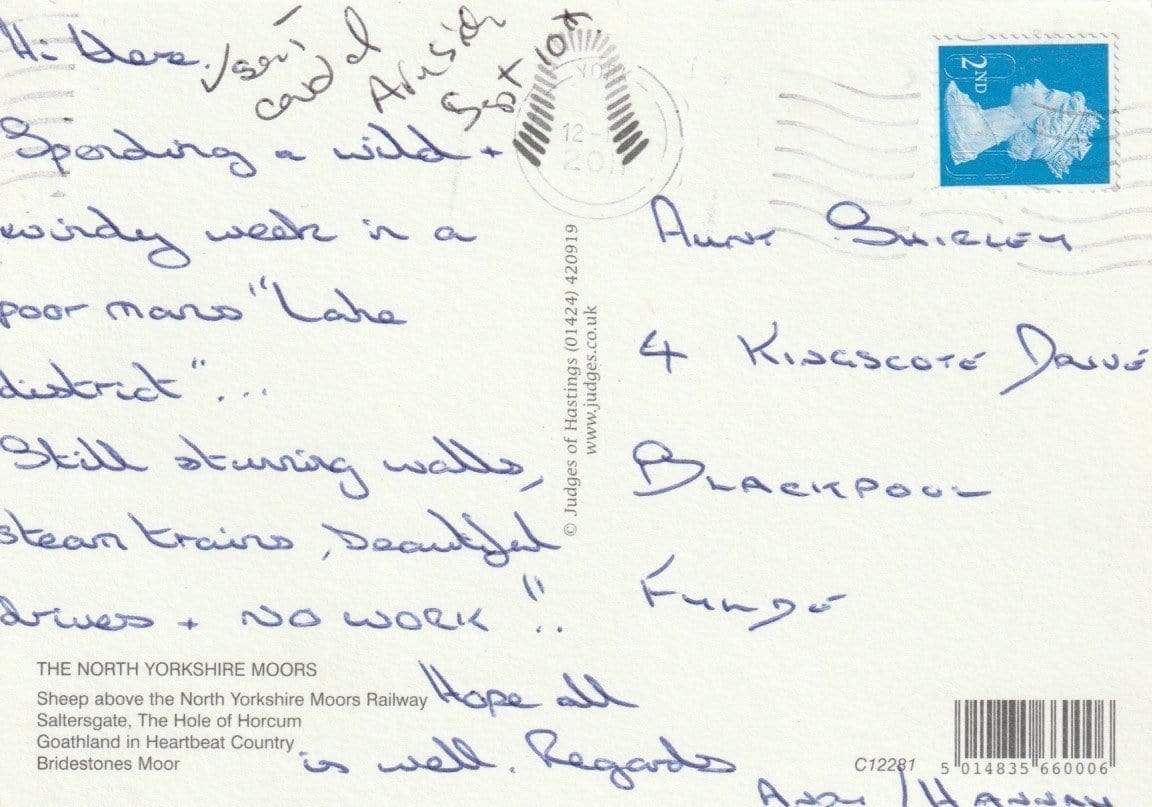 Hi there.
Spending a wild +
windy week in a
poor mans "Lake
district"...
Still stunning walls,
steam trains, beautiful
drives + NO WORK!!
Hope all
is well. Regards
Andy / Hannah
card
Sept 10
12-
201
2ND
AUNT SHIRLEY
4 KINGSCOTE DRIVE
BLACKPOOL
FYLDE
© Judges of Hastings (01424) 420919
www.judges.co.uk
THE NORTH YORKSHIRE MOORS
Sheep above the North Yorkshire Moors Railway
Saltersgate, The Hole of Horcum
Goathland in Heartbeat Country
Bridestones Moor
C12281
5 014835 660006